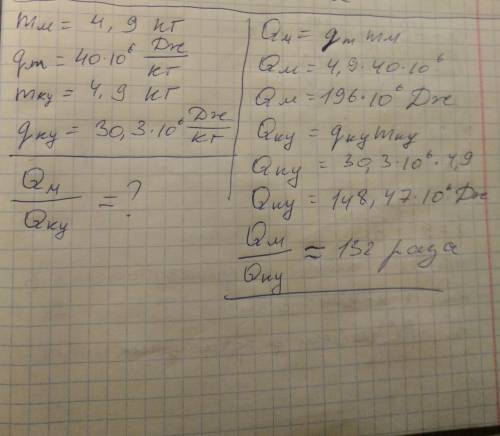 mм = 4,9 кг
qm = 40·10⁶ Дж/кг
mку = 4,9 кг
qку = 30,3·10⁶ Дж/кг
Qм/Qку = ?
Qм = qm mм
Qм = 4,9·40·10⁶
Qм = 196·10⁶ Дж
Qку = qку mку
Qку = 30,3·10⁶·4,9
Qку = 148,47·10⁶ Дж
Qм/Qку ≈ 132 раза